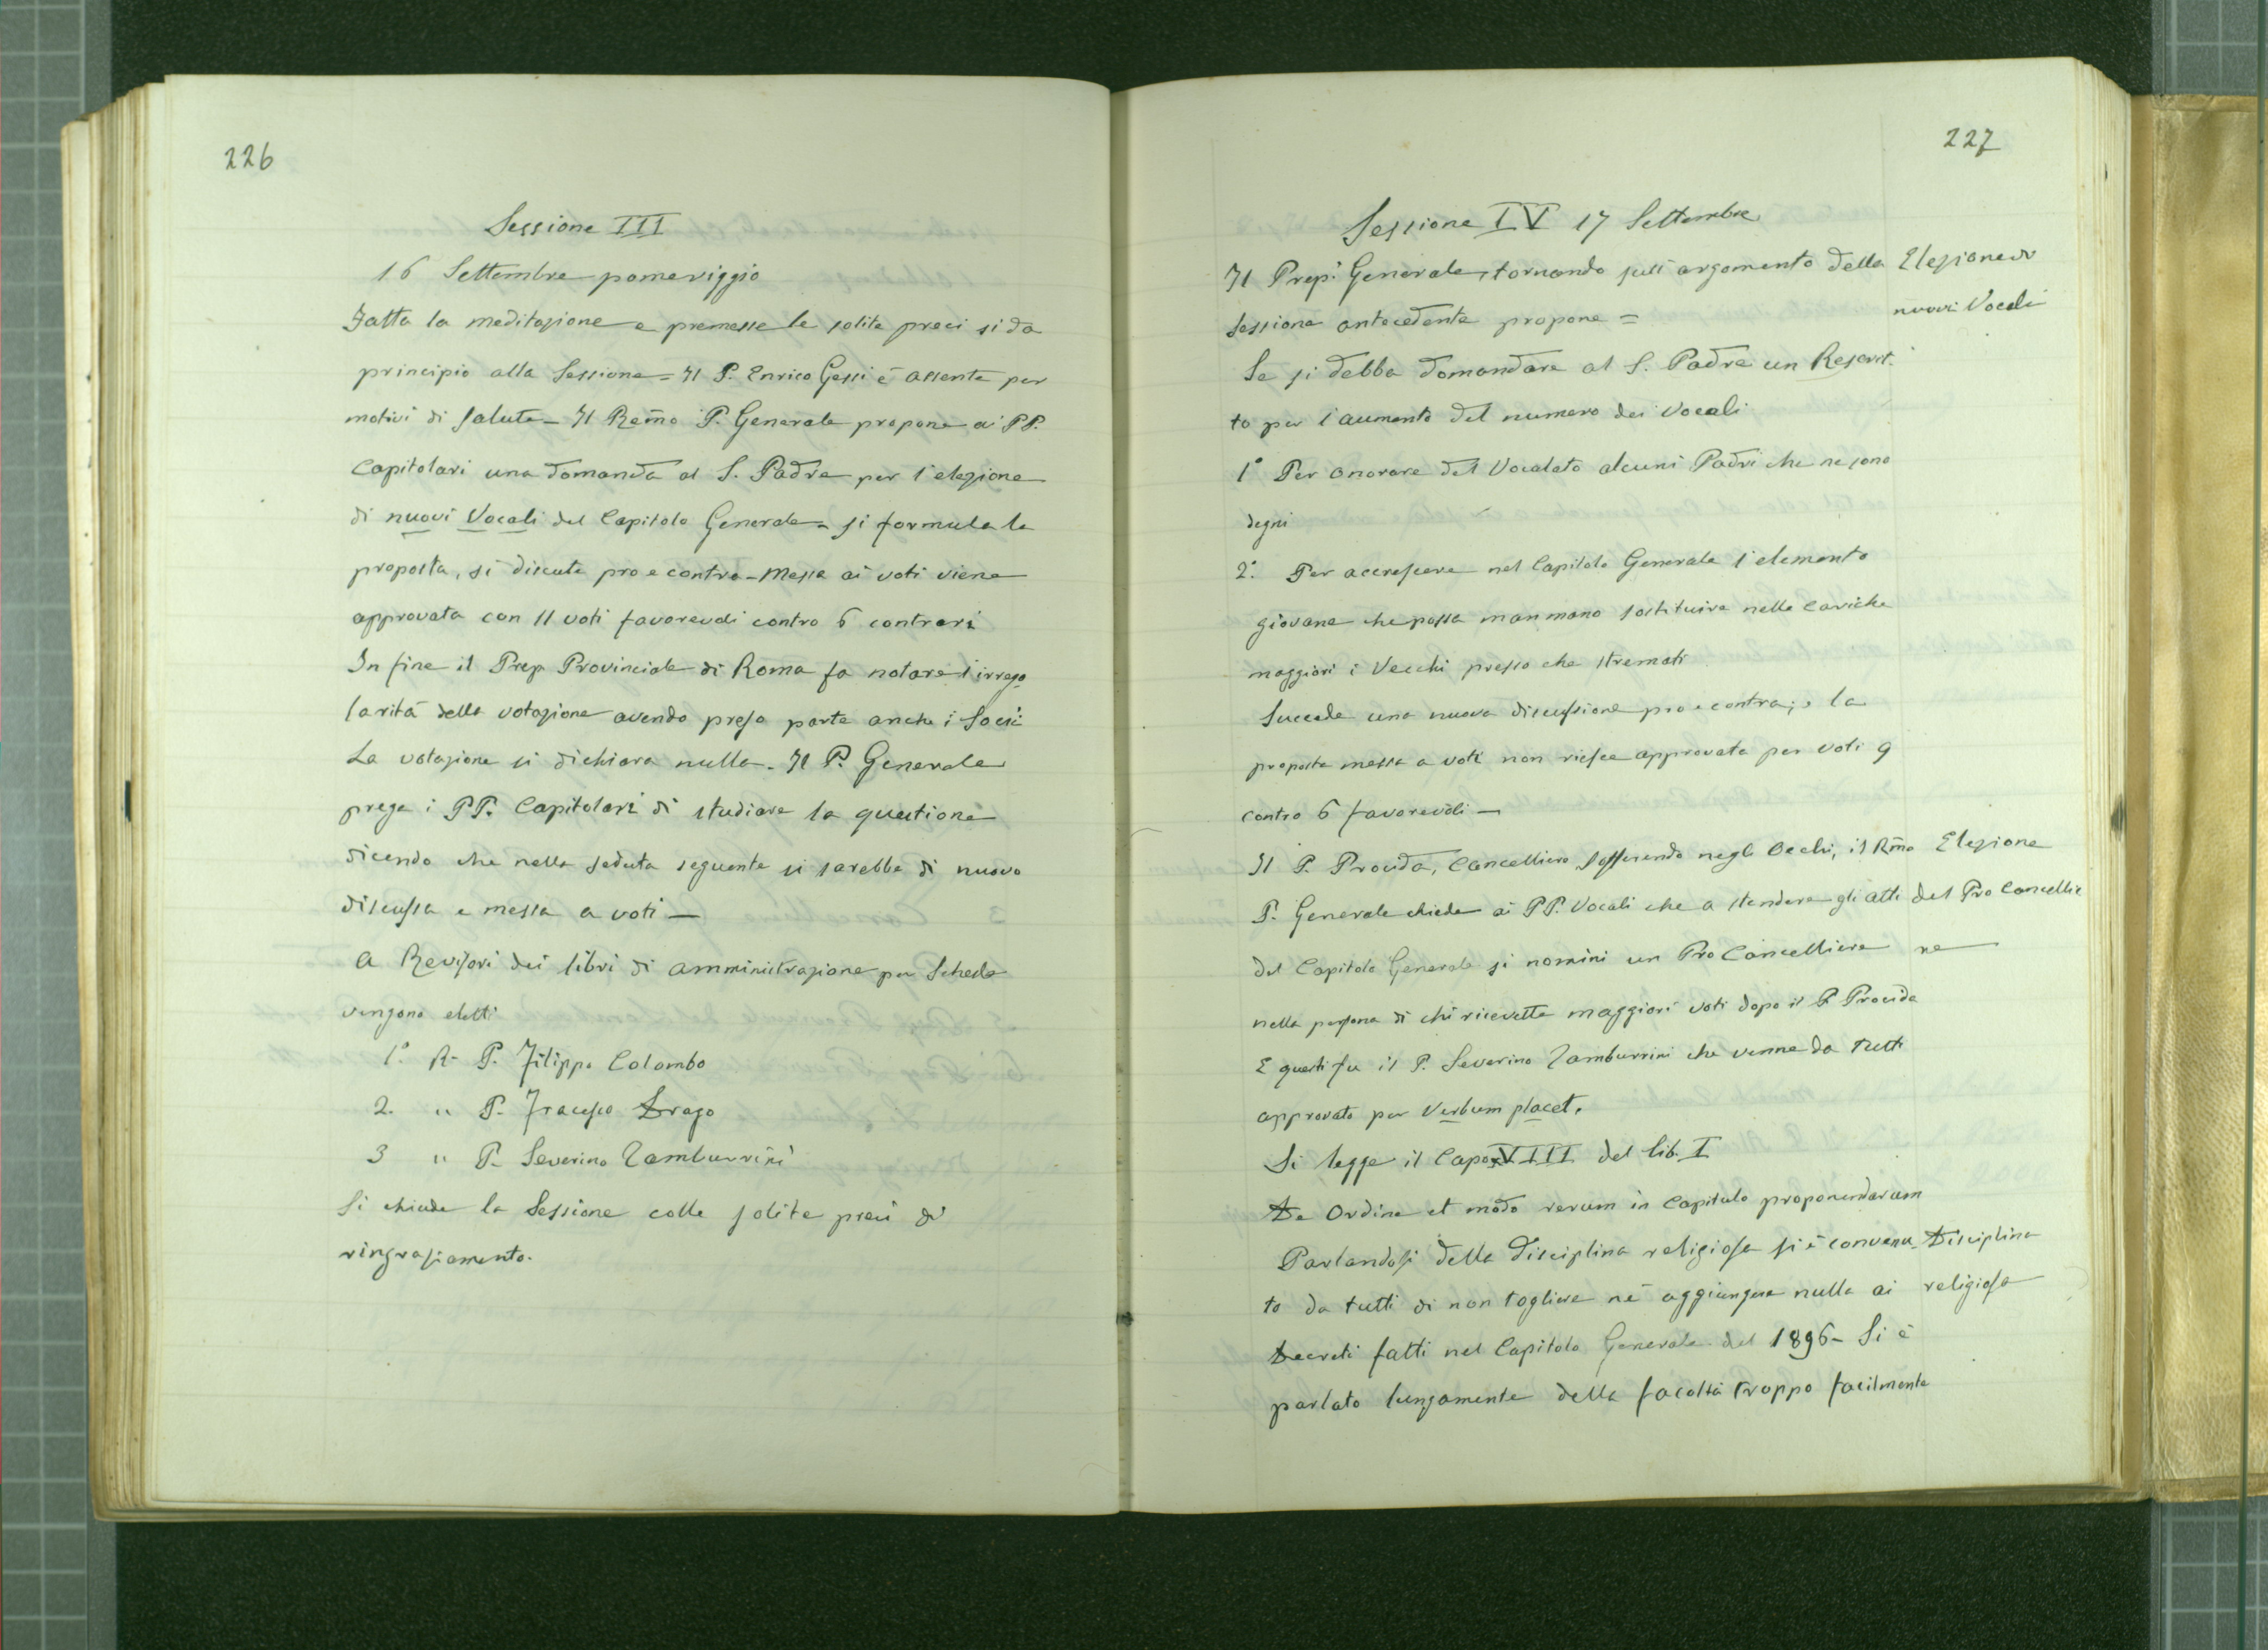 226
Sessione III
16 Settembre pomeriggio
Fatta la meditazione e premesse le solite preci si da
principio alla Sessione = Il P. Enrico Gessi è assente per
motivi di salute – Il Remo P. Generale propone ai PP.
Capitolari una domanda al S. Padre per l'elezione
di nuovi Vocali del Capitolo Generale = si formula la
proposta, si discute pro e contro – Messa ai voti viene
approvata con 11 voti favorevoli contro 6 contrari
In fine il Prep. Provinciale di Roma fa notare l'irrego
larità della votazione avendo preso parte anche i Socii
La votazione si dichiara nulla – Il P. Generale
prega i PP. Capitolari di studiare la questione
dicendo che nella seduta seguente si sarebbe di nuovo
discussa e messa a voti —
A Revisori dei libri di amministrazione per Schede
vengono eletti
1º R. P. Filippo Colombo
2. " P. Fracesco Drago
3 " P. Severino Tamburrini
Si chiude la Sessione colle solite preci di
ringraziamento.
227
Sessione IV 17 Settembre
Il Prep. Generale, tornando sull'argomento della
sessione antecedente propone =
Elezione di
nuovi Vocali
Se si debba domandare al S. Padre un Rescrit-
to per l'aumento del numero dei Vocali
1º Per onorare del Vocalato alcuni Padri che ne sono
degni
2º. Per accrescere nel Capitolo Generale l'elemento
giovane che possa man mano sostituire nelle cariche
maggiori i Vecchi presso che stremati
Succede una nuova discussione pro e contra; e la
proposta messa a voti non riesce approvata per voti 9
contro 6 favorevoli —
Il P. Procida, Cancelliere, soffrendo negli occhi, il Rmo
P. Generale chiede ai PP. Vocali che a stendere gli atti
del Capitolo Generale si nomini un Pro Cancelliere
Elezione
del Pro Cancellie
re
nella persona di chi ricevette maggiori voti dopo il P. Procida
E questi fu il P. Severino Tamburrini che venne da tutti
approvato per Verbum placet.
Si legge il Capo XVIII del Lib. I
De Ordine et modo rerum in Capitulo proponendarum
Parlandosi della disciplina religiosa si è convenu-
to da tutti di non togliere nè aggiungere nulla ai
Disciplina
religiosa
Decreti fatti nel Capitolo Generale del 1896 – Si è
parlato lungamente della facoltà troppo facilmente